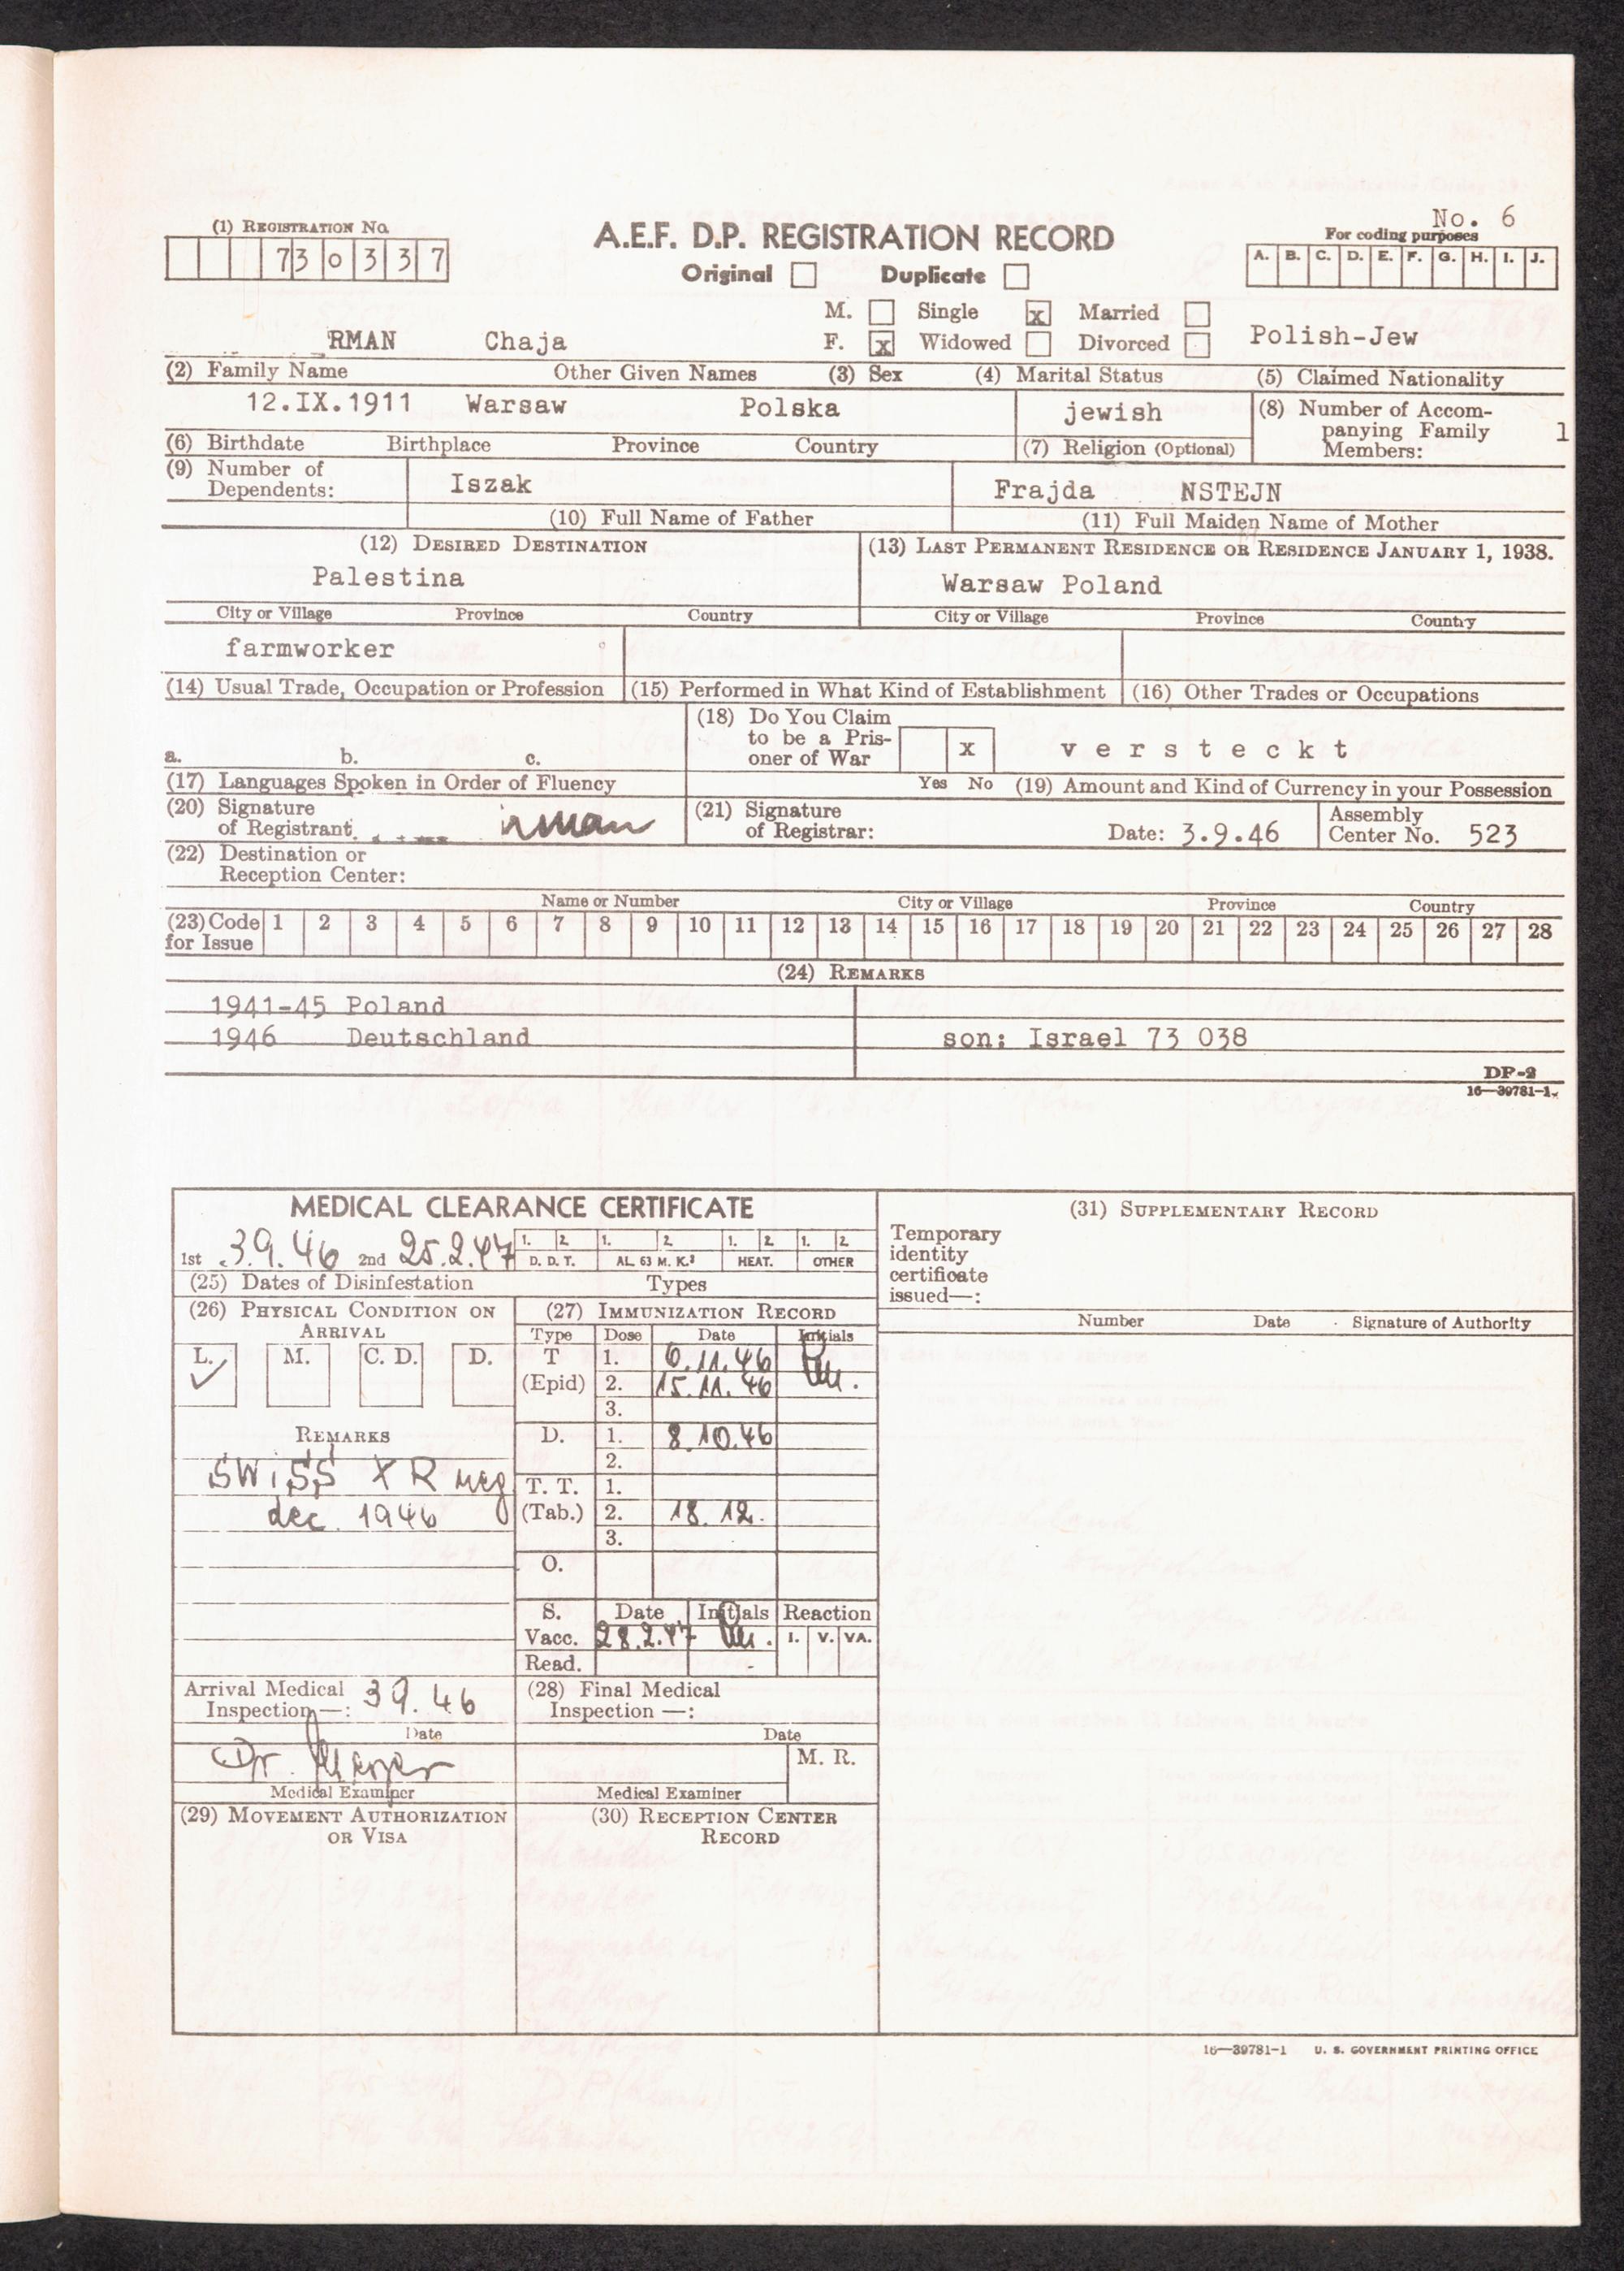 No. 6
(1) REGISTRATION No.
730337
A.E.F. D.P. REGISTRATION RECORD
Original Duplicate
For coding purposes
A. B. C. D. E. F. G. H. I. J.
M. Single x Married
RMAN Chaja F. x Widowed Divorced Polish-Jew
(2) Family Name Other Given Names (3) Sex (4) Marital Status (5) Claimed Nationality
12.IX.1911 Warsaw Polska jewish
(6) Birthdate Birthplace Province Country (7) Religion (Optional)
(8) Number of Accom-
panying Family 1
Members:
(9) Number of
Dependents:
Iszak Frajda NSTEJN
(10) Full Name of Father (11) Full Maiden Name of Mother
(12) DESIRED DESTINATION (13) LAST PERMANENT RESIDENCE OR RESIDENCE JANUARY 1, 1938.
Palestina Warsaw Poland
City or Village Province Country City or Village Province Country
farmworker
(14) Usual Trade, Occupation or Profession (15) Performed in What Kind of Establishment (16) Other Trades or Occupations
(18) Do You Claim
to be a Pris-
oner of War
x versteckt
a. b. c.
(17) Languages Spoken in Order of Fluency Yes No (19) Amount and Kind of Currency in your Possession
(20) Signature
of Registrant: rman
(21) Signature
of Registrar: Date: 3.9.46
Assembly
Center No. 523
(22) Destination or
Reception Center:
Name or Number City or Village Province Country
(23) Code
for Issue
1 2 3 4 5 6 7 8 9 10 11 12 13 14 15 16 17 18 19 20 21 22 23 24 25 26 27 28
(24) REMARKS
1941-45 Poland
1946 Deutschland son: Israel 73 038
DP-2
16—39781-1
MEDICAL CLEARANCE CERTIFICATE
1st 3.9.46 2nd 25.2.47
1. 2. 1. 2. 1. 2. 1. 2.
D. D. T. AL. 63 M. K.³ HEAT. OTHER
(25) Dates of Disinfestation Types
(26) PHYSICAL CONDITION ON
ARRIVAL
L. M. C. D. D.
✓
REMARKS
SWISS XR neg
dec. 1946
(27) IMMUNIZATION RECORD
Type Dose Date Initials
T 1. 6.11.46
(Epid) 2. 15.11.46
3.
D. 1. 8.10.46
2.
T. T. 1.
(Tab.) 2. 18.12.
3.
O.
S. Date Initials Reaction
Vacc. 28.2.47 I. V. VA.
Read.
Arrival Medical
Inspection—: 3 9. 46
Date
Dr.
Medical Examiner
(28) Final Medical
Inspection —:
Date
M. R.
Medical Examiner
(29) MOVEMENT AUTHORIZATION
OR VISA
(30) RECEPTION CENTER
RECORD
(31) SUPPLEMENTARY RECORD
Temporary
identity
certificate
issued—:
Number Date Signature of Authority
16—39781-1 U. S. GOVERNMENT PRINTING OFFICE